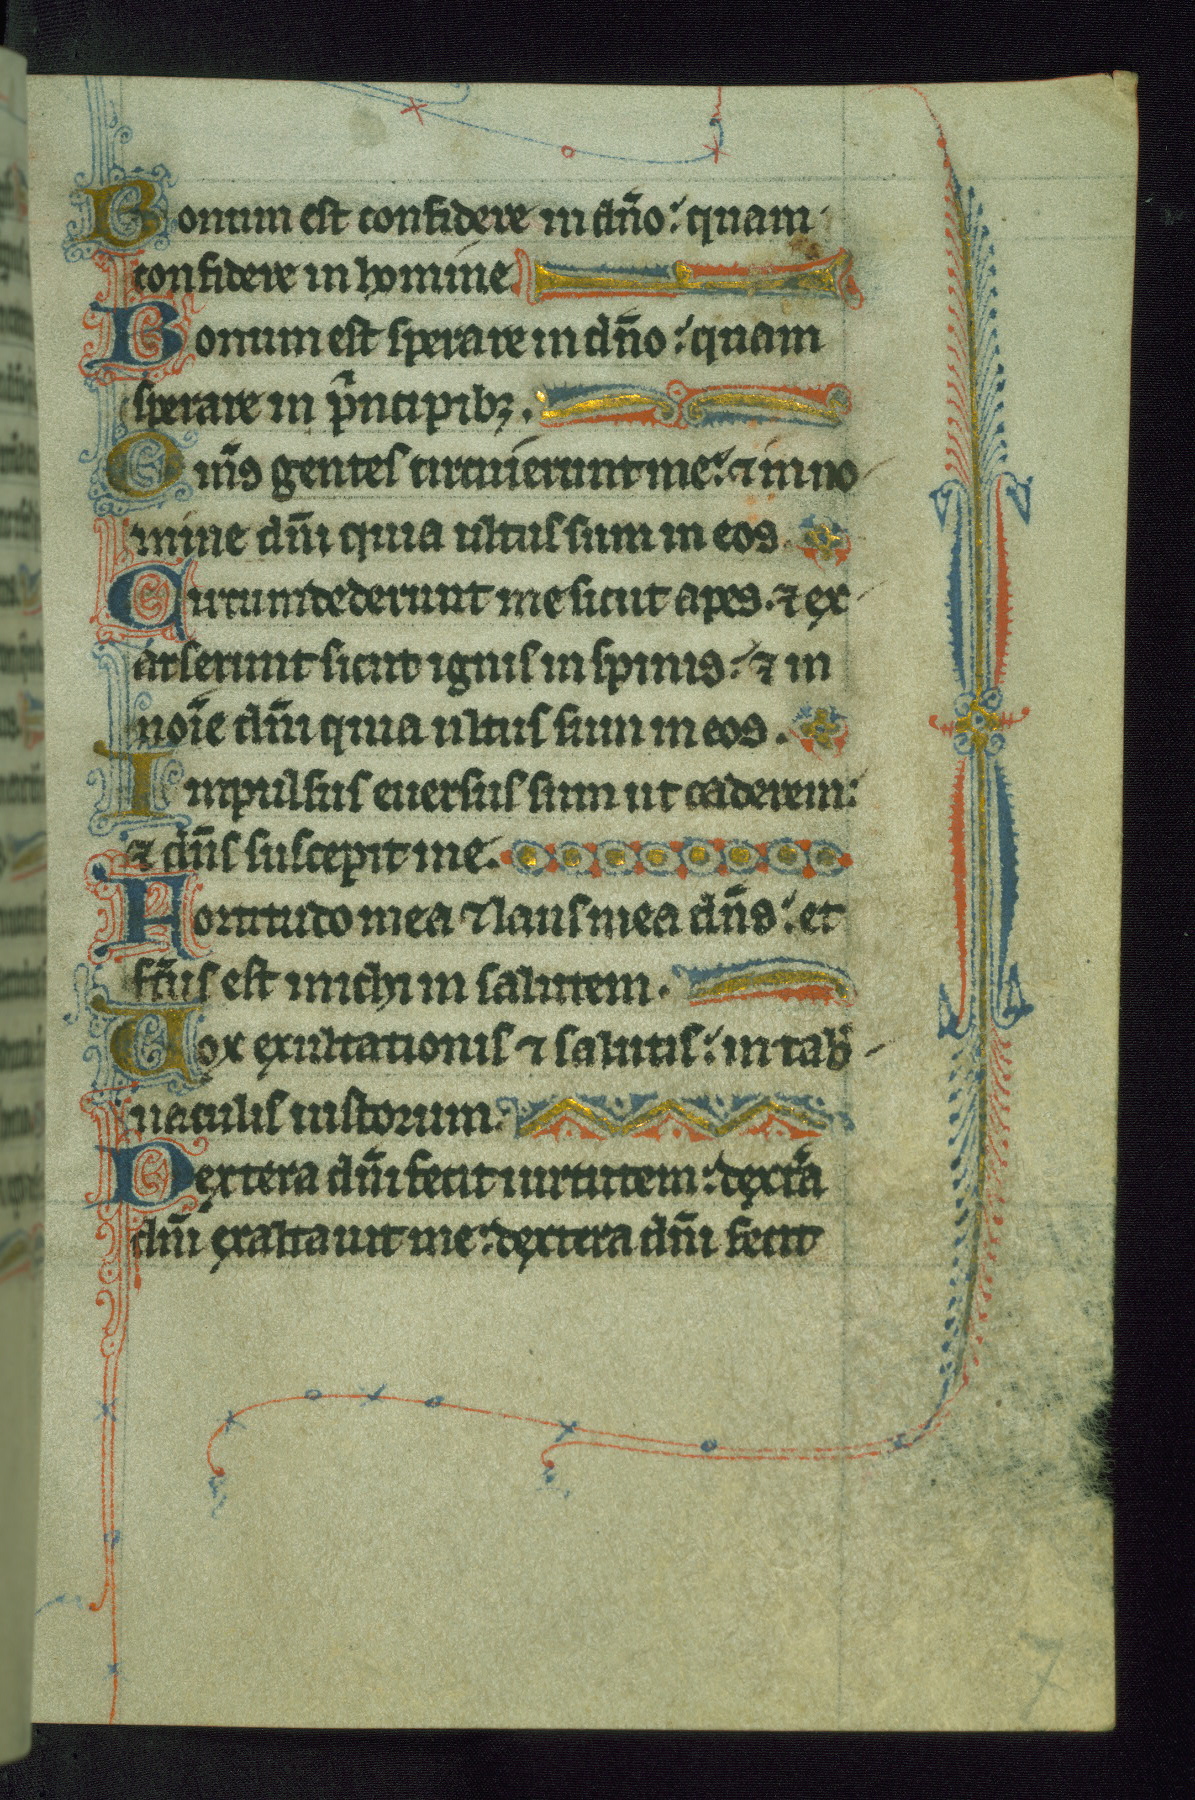 Bonum est confidere in dn̄o: quam
confidere in homine.
Bonum est sperare in dn̄o: quam
sperare in p̄ncipibꝫ.
Om̄s gentes circuierunt me: ⁊ in no
mine dn̄i quia ultus sum in eos
Circumdederunt me sicut apes. ⁊ ex
arserunt sicut ignis in spinis: ⁊ in
noīe dn̄i quia ultus sum in eos.
Impulsus euersus sum ut caderem:
⁊ dn̄s suscepit me.
Hortitudo mea ⁊ laus mea dn̄s: et
fc̄us est michi in salutem.
Uox exultationis ⁊ salutis: in tab̄
naculis iustorum.
Dextera dn̄i fecit uirtutem: dext̄a
dn̄i exaltauit me: dextera dn̄i fecit
7